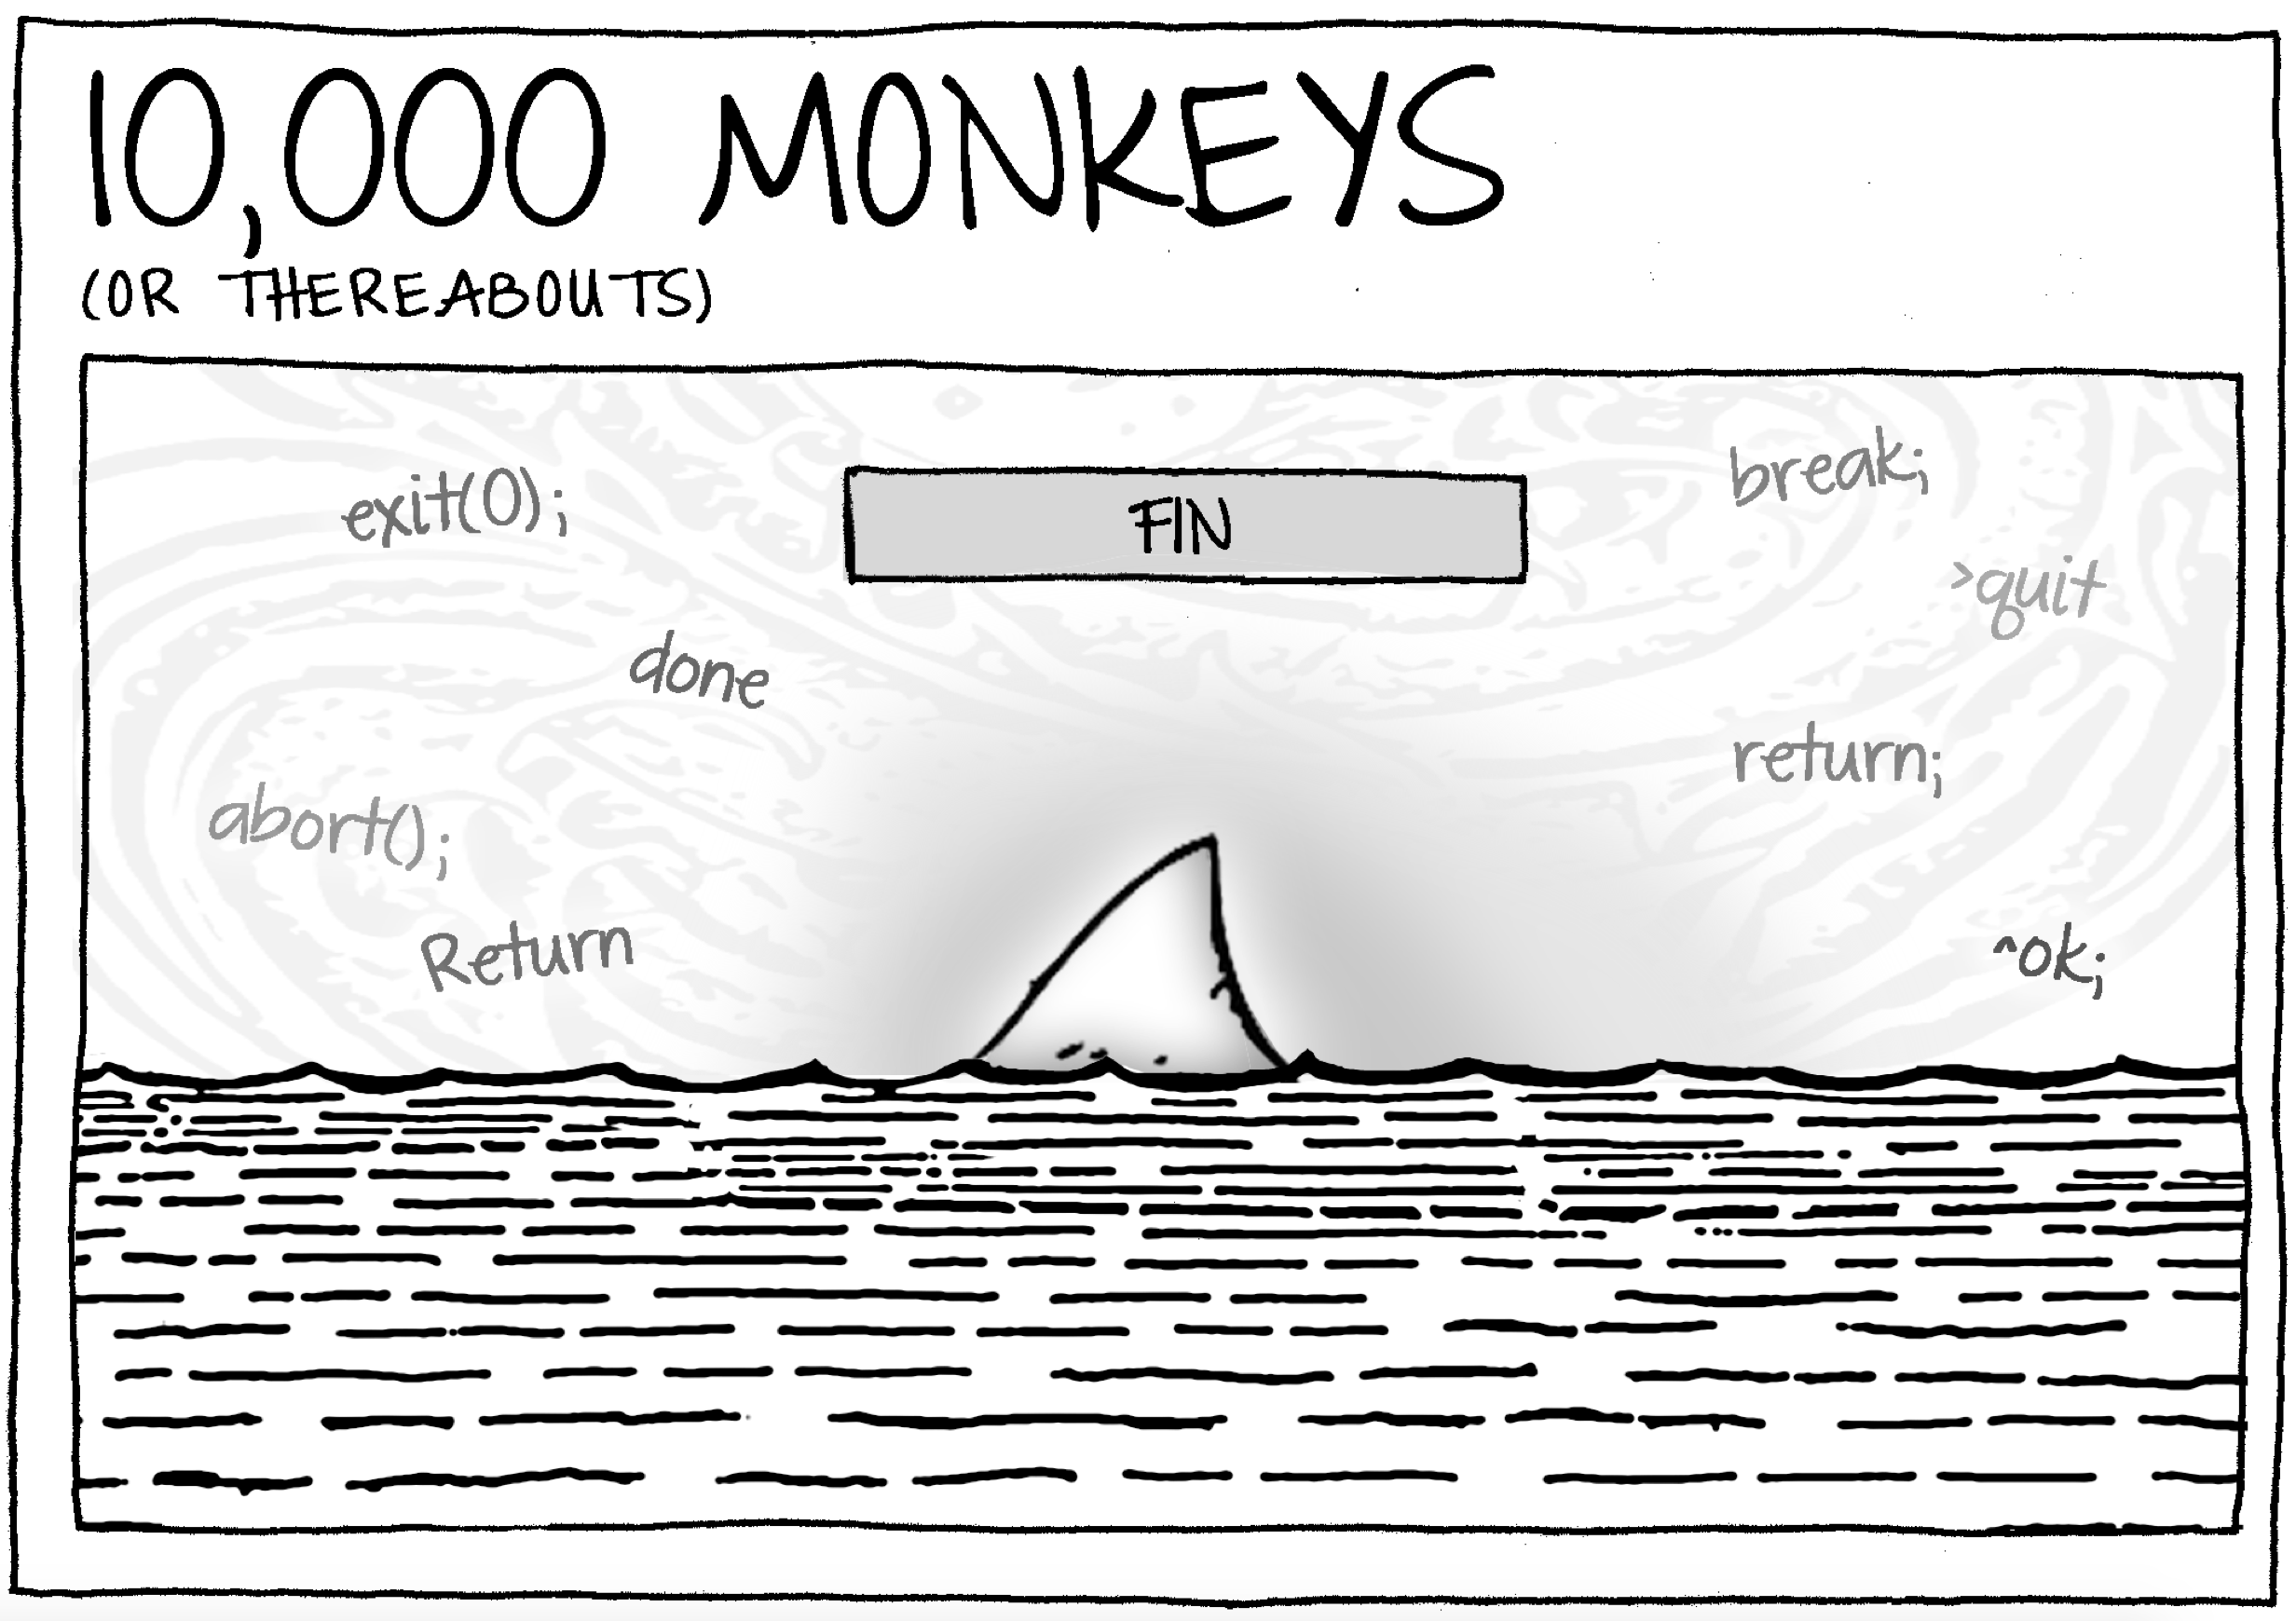 10,000 MONKEYS
(OR THEREABOUTS)
exit(0);
FIN
break;
>quit
done
return;
abort();
Return
^ok;